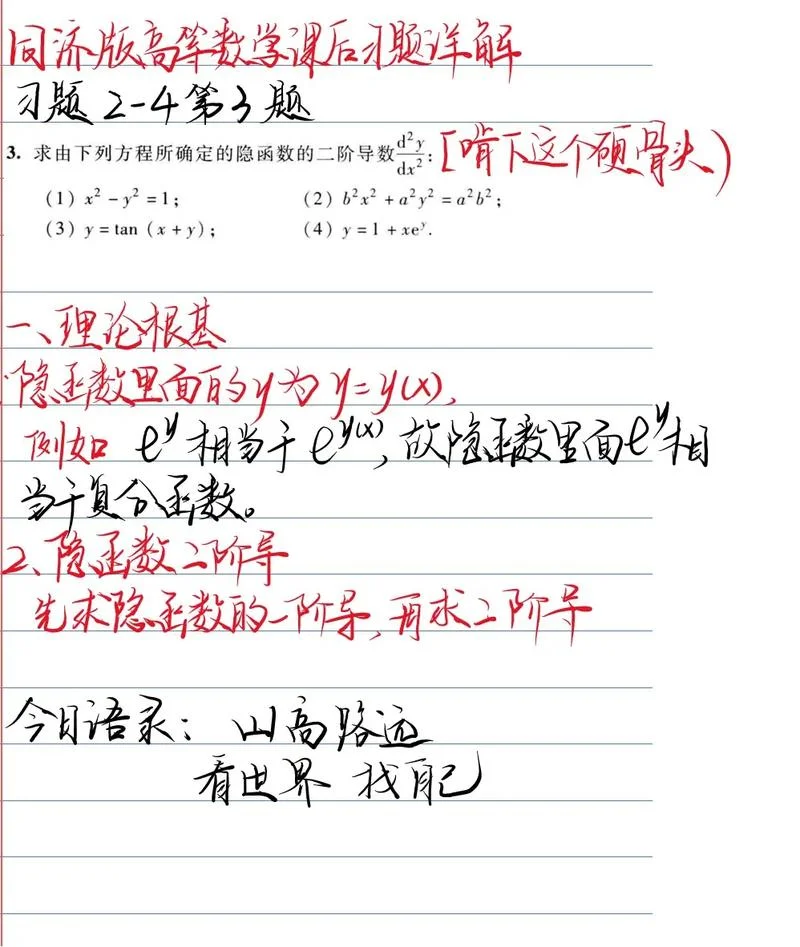 同济版高等数学课后习题详解
习题2-4第3题
3. 求由下列方程所确定的隐函数的二阶导数d²y/dx²: [啃下这个硬骨头)
(1) x² - y² = 1; (2) b²x² + a²y² = a²b²;
(3) y = tan (x + y); (4) y = 1 + xeʸ.
一、理论根基
隐函数里面的y为y=y(x),
例如 eʸ相当于e^y(x), 故隐函数里面eʸ相
当于复合函数。
2、隐函数二阶导
先求隐函数的一阶导, 再求二阶导
今日语录: 山高路远
看世界 找自己